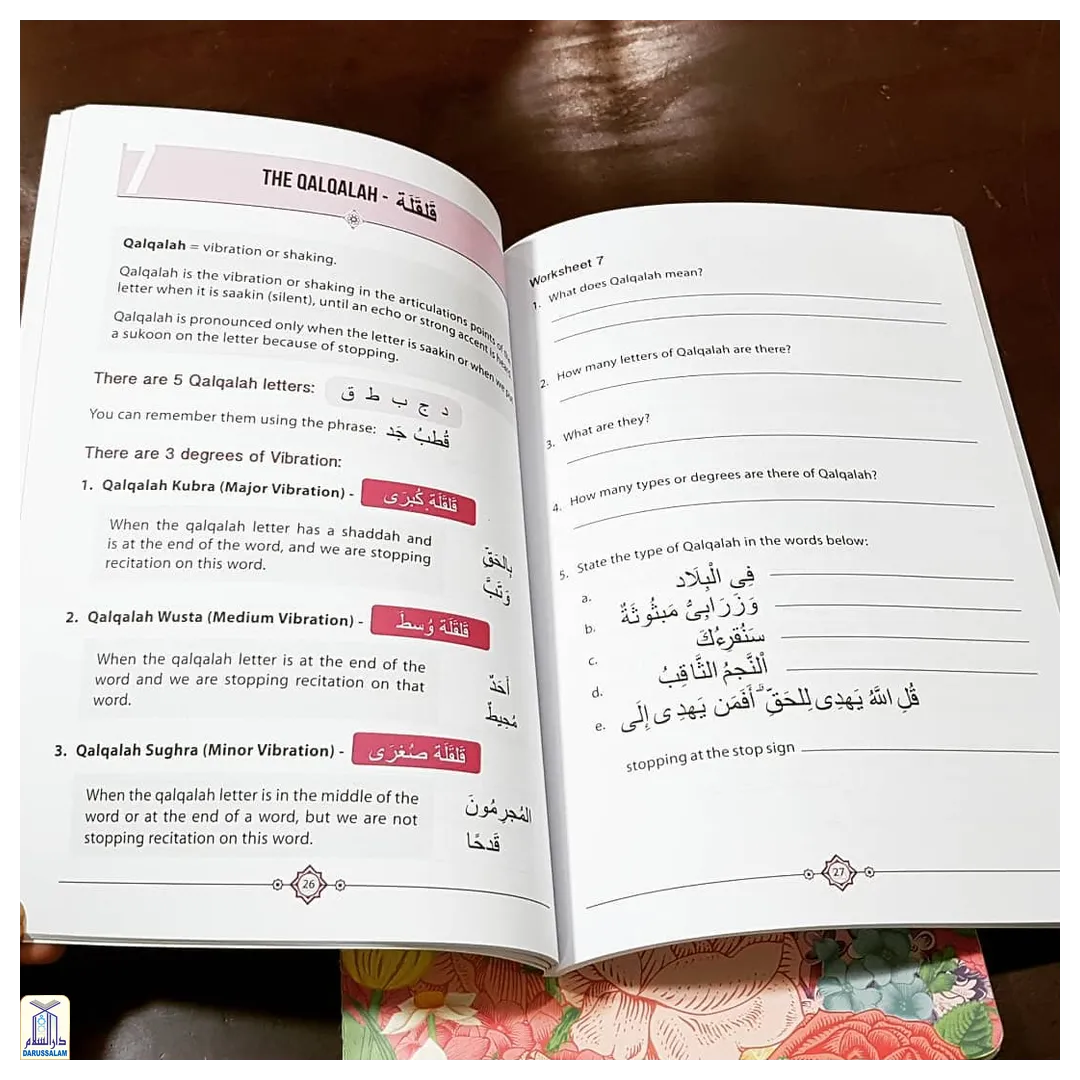 7
THE QALQALAH - قَلقَلَة
Qalqalah = vibration or shaking.
Qalqalah is the vibration or shaking in the articulations points of the
letter when it is saakin (silent), until an echo or strong accent is heard
Qalqalah is pronounced only when the letter is saakin or when we put
a sukoon on the letter because of stopping.
There are 5 Qalqalah letters: ق ط ب ج د
You can remember them using the phrase: قُطبُ جَد
There are 3 degrees of Vibration:
1. Qalqalah Kubra (Major Vibration) - قَلقَلَة كُبرَى
When the qalqalah letter has a shaddah and
is at the end of the word, and we are stopping
recitation on this word.
بِالحَقِّ
وَتَبَّ
2. Qalqalah Wusta (Medium Vibration) - قَلقَلَة وُسطَ
When the qalqalah letter is at the end of the
word and we are stopping recitation on that
word.
أَحَدٌ
مُحِيطٌ
3. Qalqalah Sughra (Minor Vibration) - قَلقَلَة صُغرَى
When the qalqalah letter is in the middle of the
word or at the end of a word, but we are not
stopping recitation on this word.
المُجرِمُونَ
قَدحًا
26
Worksheet 7
1. What does Qalqalah mean?
2. How many letters of Qalqalah are there?
3. What are they?
4. How many types or degrees are there of Qalqalah?
5. State the type of Qalqalah in the words below:
a. فِي الْبِلَاد
b. وَزَرَابِىُّ مَبثُوثَةٌ
c. سَنُقرِءُكَ
d. اْلنَّجمُ الثَّاقِبُ
e. قُلِ اللَّهُ يَهدِى لِلحَقِّ ۗ أَفَمَن يَهدِى إِلَى
stopping at the stop sign
27
دار السلام
DARUSSALAM